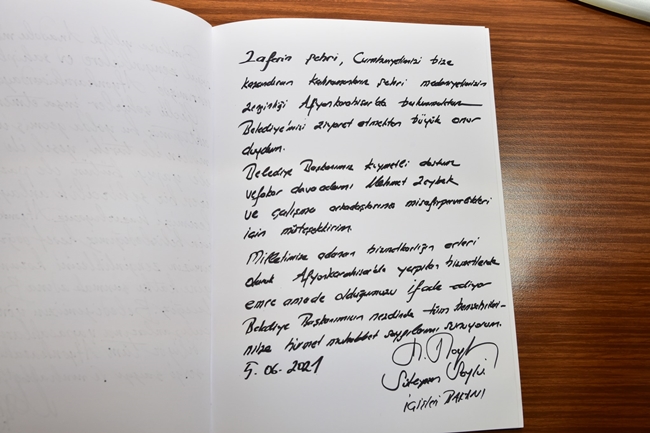 Zaferin şehri, Cumhuriyetimizi bize
kazandıran Kahramanların şehri medeniyetimizin
zenginliği Afyonkarahisar'da bulunmaktan
Belediye'mizi ziyaret etmekten büyük onur
duydum.
Belediye Başkanımız kıymetli dostum
vefakar dava adamı Mehmet Zeybek
ve çalışma arkadaşlarına misafirperverlikleri
için müteşekkirim.
Milletimize adanan hizmetkarlığın erleri
olarak Afyonkarahisar'da yapılan hizmetlerde
emre amade olduğumuzu ifade ediyor
Belediye Başkanımızın nezdinde tüm hemşehrileri-
mize hürmet muhabbet saygılarımı sunuyorum.
5.06.2021
Süleyman Soylu
İÇİŞLERİ BAKANI